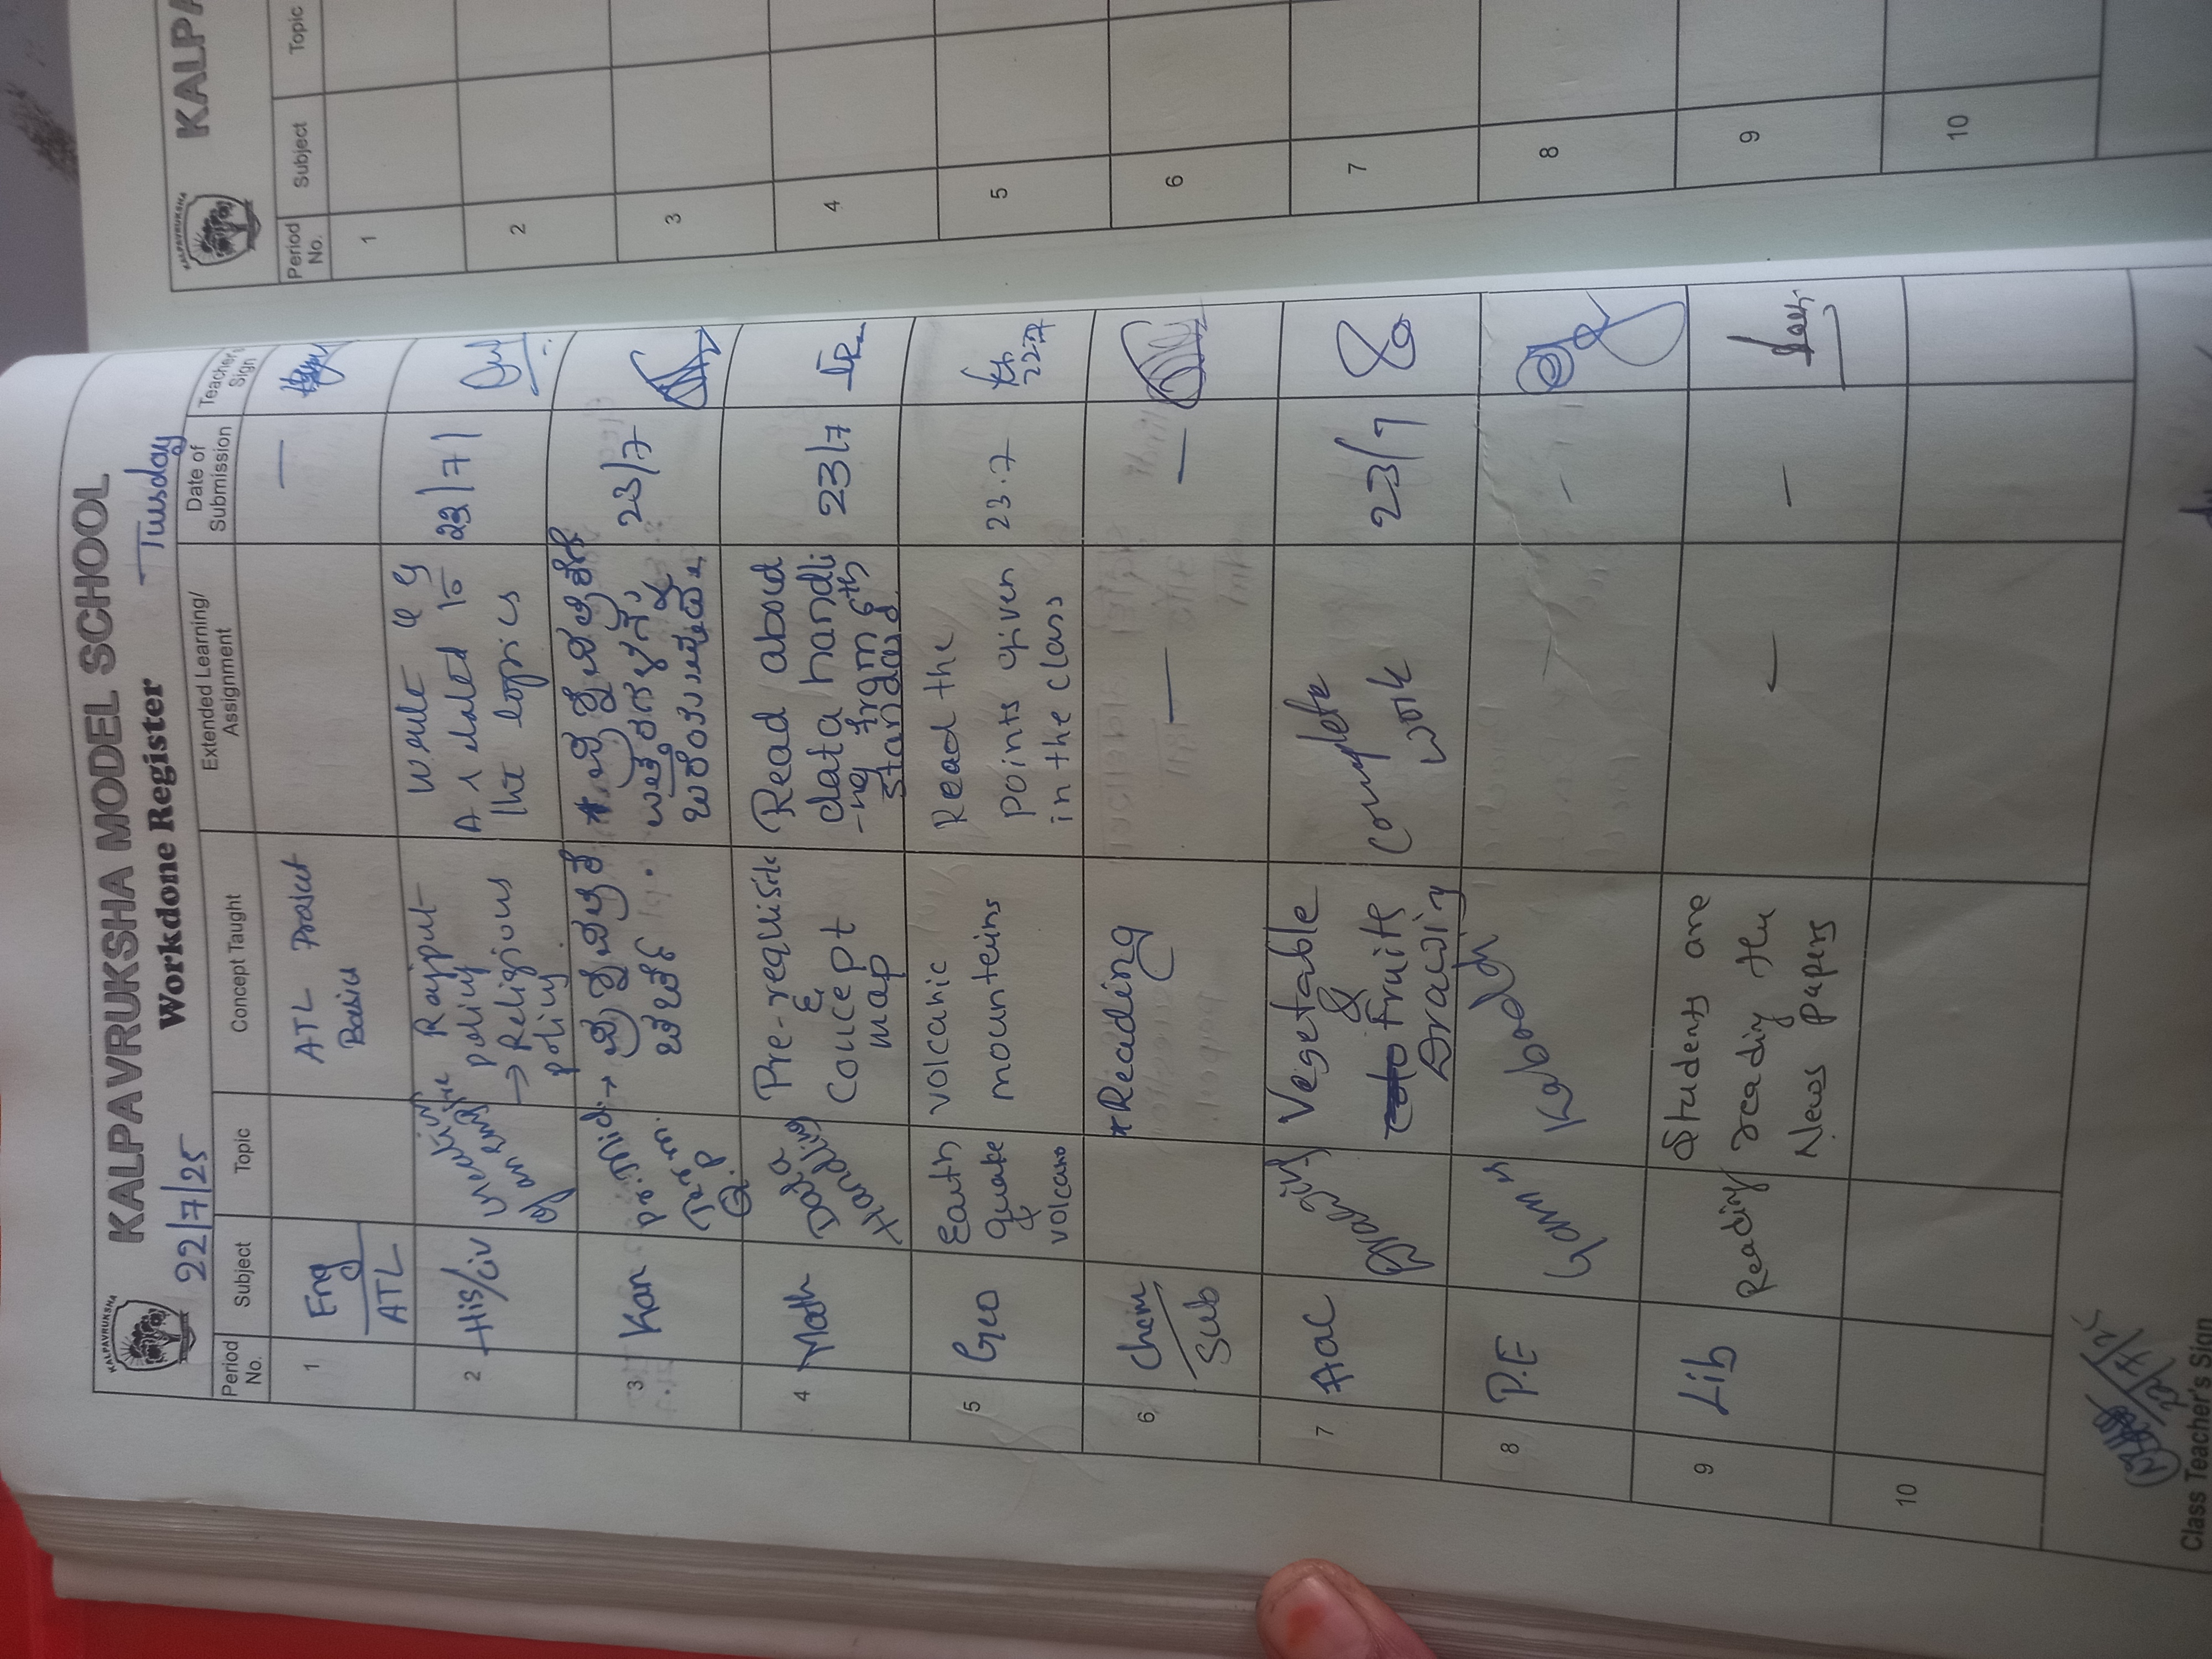 KALPAVRUKSHA
KALPAVRUKSHA MODEL SCHOOL
22/7/25 Workdone Register Tuesday
Period No. Subject Topic Concept Taught Extended Learning/ Assignment Date of Submission Teachers Sign
1 Eng ATL ATL —
2 His/civ Rajput policy → Religious policy Write Q & A related to the topics 23/7/
3 Kan Mid Term Q.P 23/7
4 Math Data Handling Pre-requisite & Concept map Read about data handli -ng from 6th standard 23/7
5 Geo Earth quake & volcano volcanic mounteins Read the points given in the class 23.7 22.7
6 Chem Sub *Reading — —
7 AOC Drawing Vegetable & Fruits Drawing complete work 23/7
8 P.E Games Kabaddi - -
9 Lib Reading Students are reading the News papers — —
10
22/7/25
Class Teacher's Sign
KALPAVRUKSHA
KALPA
Period No. Subject Topic
1
2
3
4
5
6
7
8
9
10